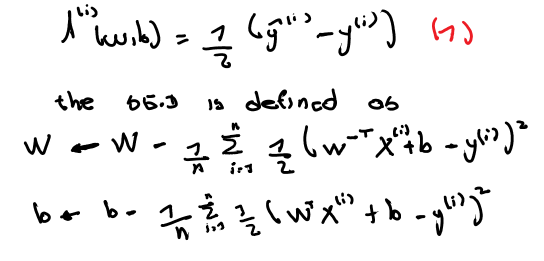 l^{(i)}(w,b) = \frac{1}{2} (ŷ^{(i)} - y^{(i)}) (1)
the is defined as
W ← W - \frac{1}{n} \sum_{i=1}^{n} \frac{1}{2} (w^{-T} x^{(i)} + b - y^{(i)})^2
b ← b - \frac{1}{n} \sum_{i=1}^{n} \frac{1}{2} (w^T x^{(i)} + b - y^{(i)})^2